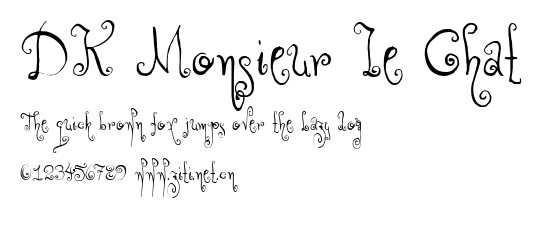 DK Monsieur Le Chat
The quick brown fox jumps over the lazy dog
0123456789 www.ziti.net.cn